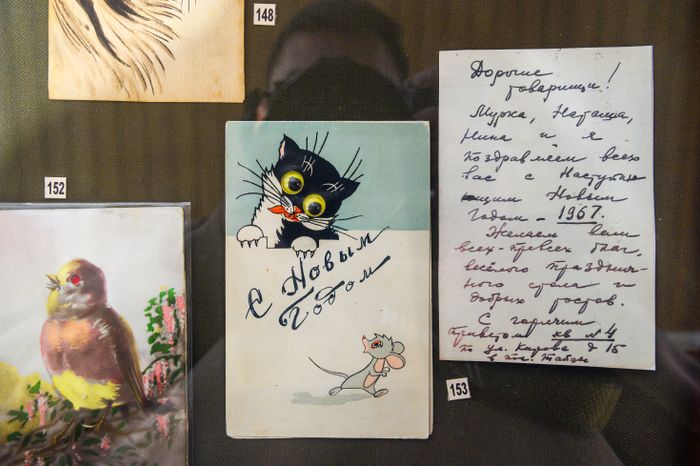 148
152
С Новым
Годом
153
Дорогие
товарищи!
Мурка, Наташа,
Нина и я
поздравляем всех
вас с Наступаю
щим Новым
Годом - 1967.
Желаем вам
всех-превсех благ,
весёлого празднич-
ного стола и
добрых гостей.
С горячим
приветом кв № 4
по ул. Кирова д 15
в пос.